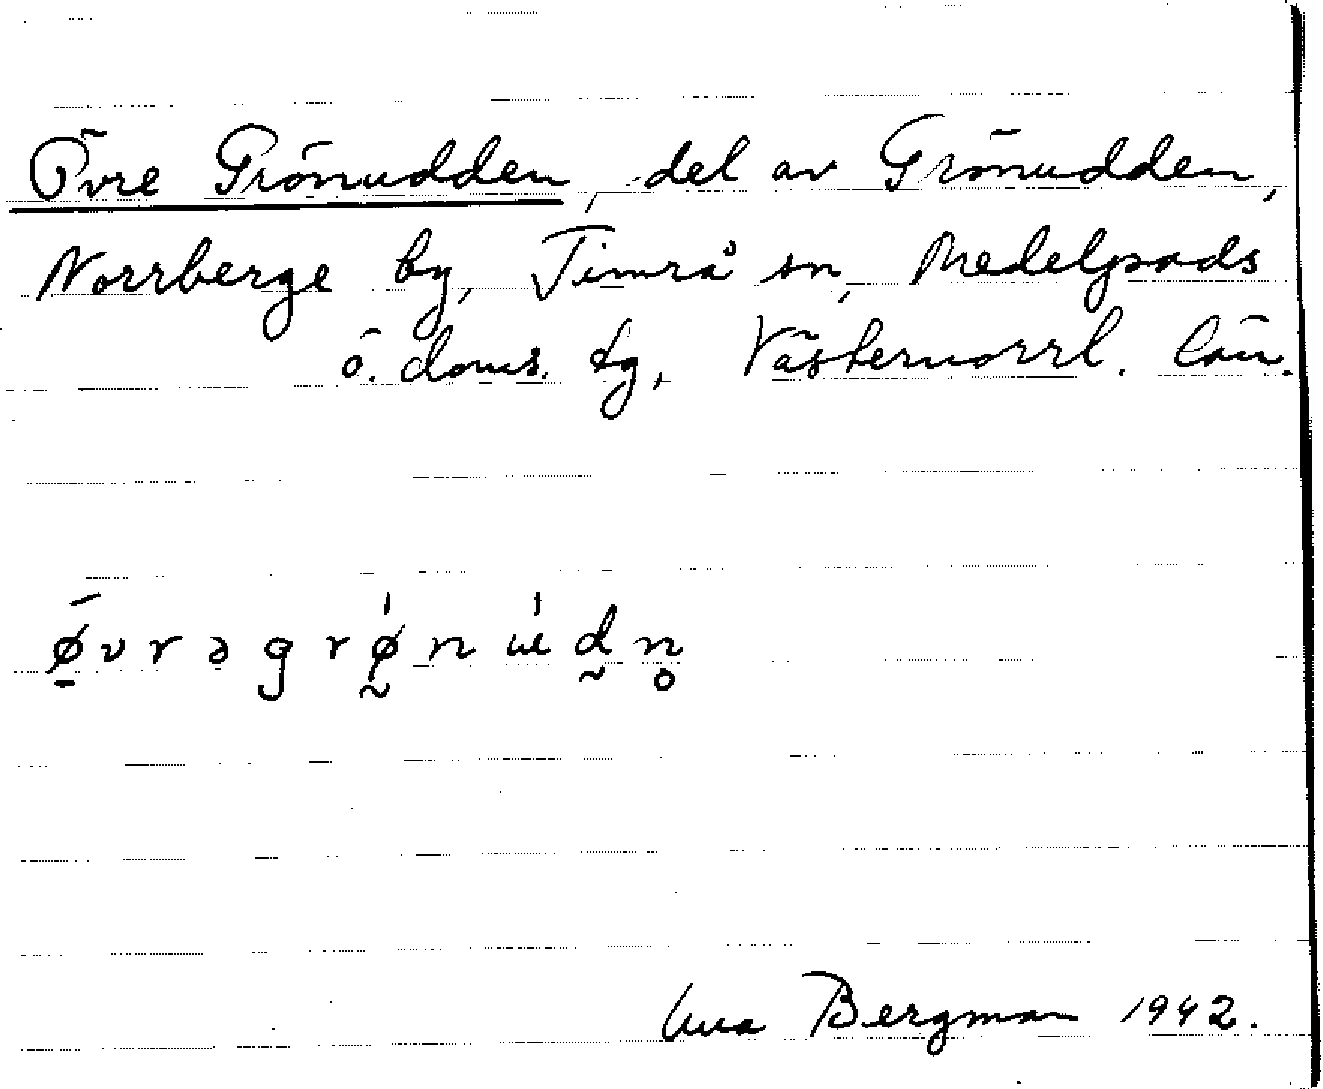 Övre Grönudden, del av Grönudden,
Norrberge by, Timrå sn, Medelpads
ö. doms. tg, Västernorrl. län.
ǿ̱vrəgrǿ̰nʉ́d̰n̥
Bergman 1942.